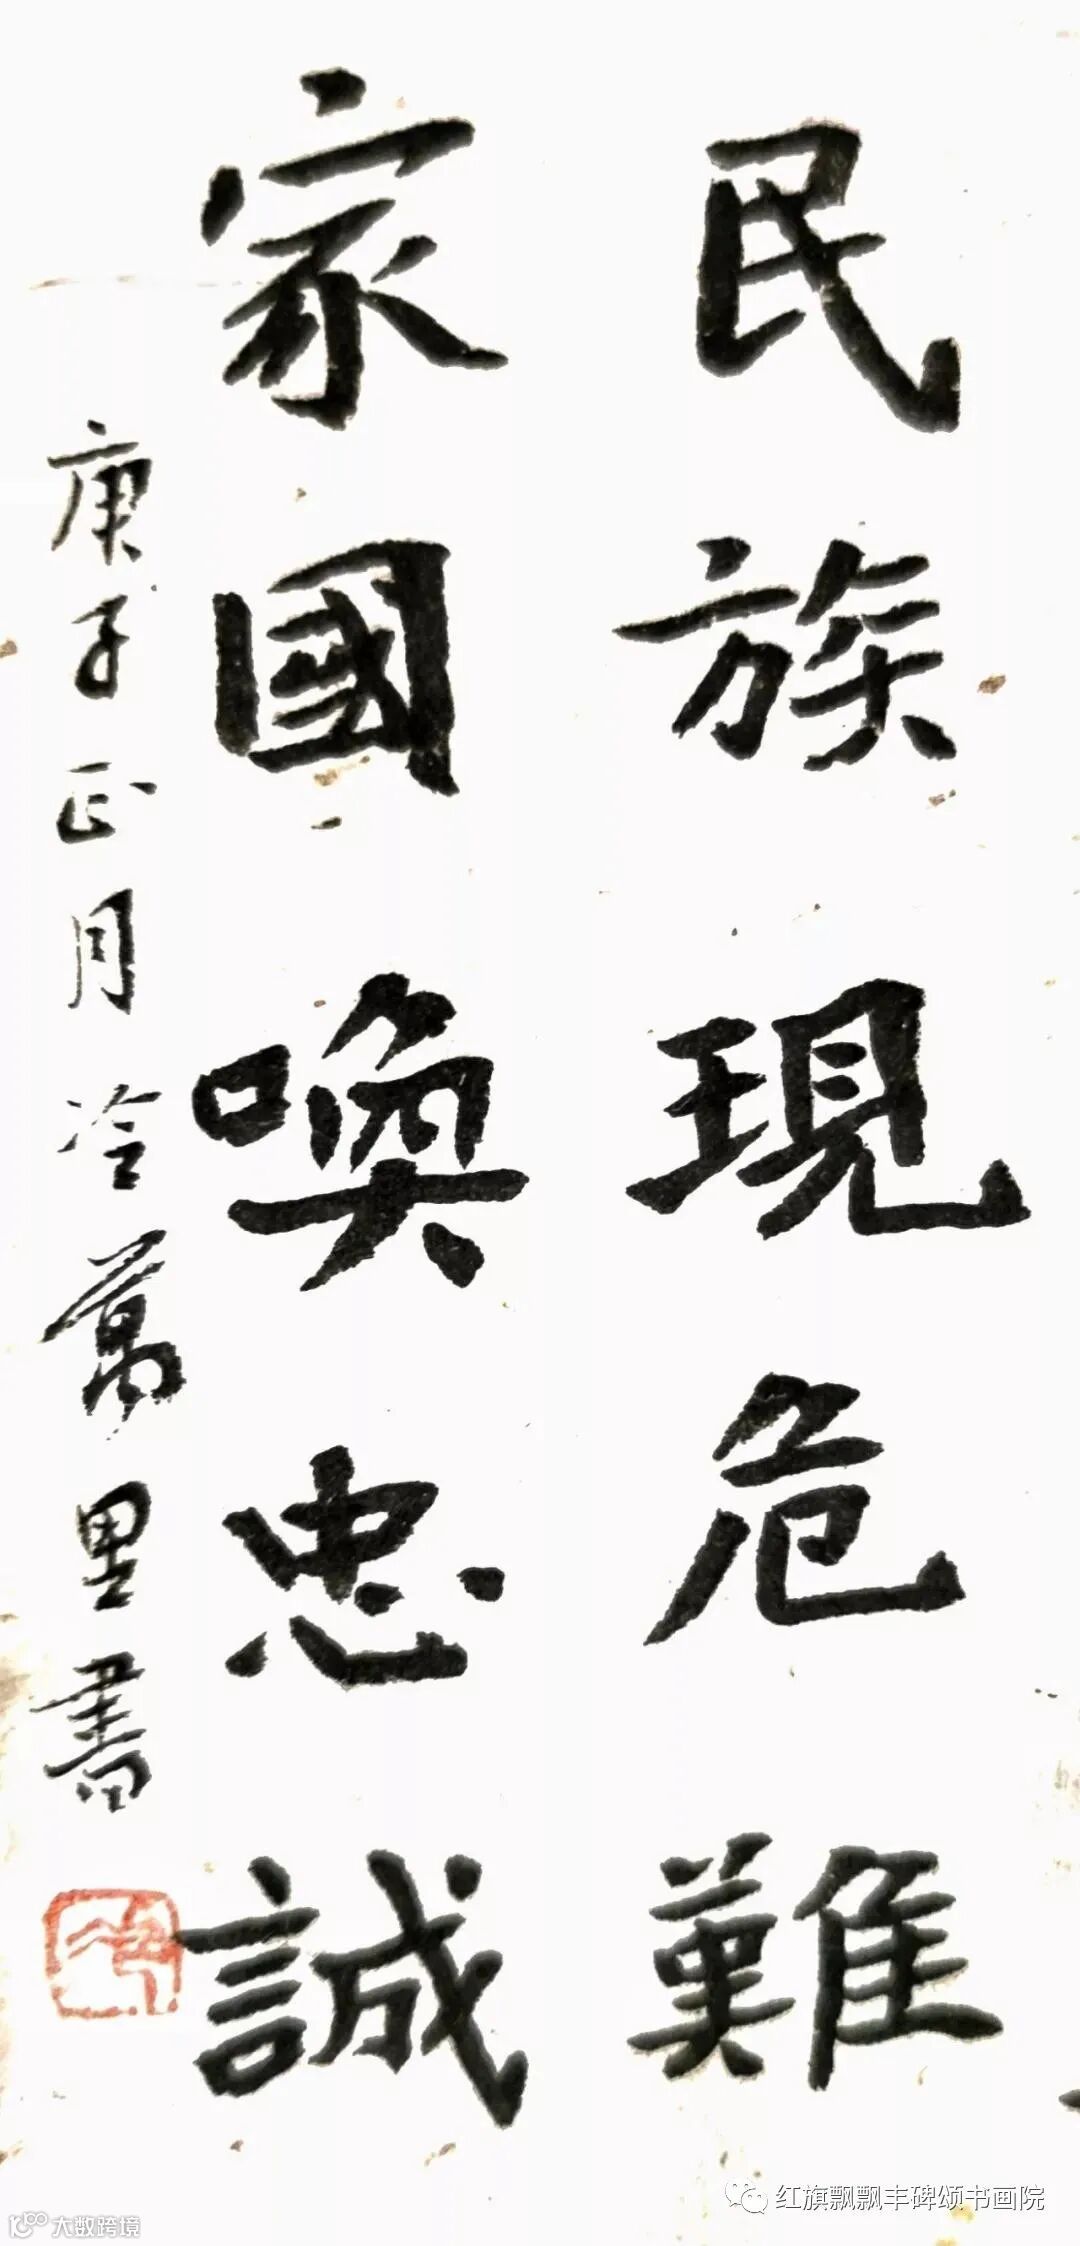 民族現危難
家國喚忠誠
庚子正月冷萬里書
红旗飘飘丰碑颂书画院
大数跨境